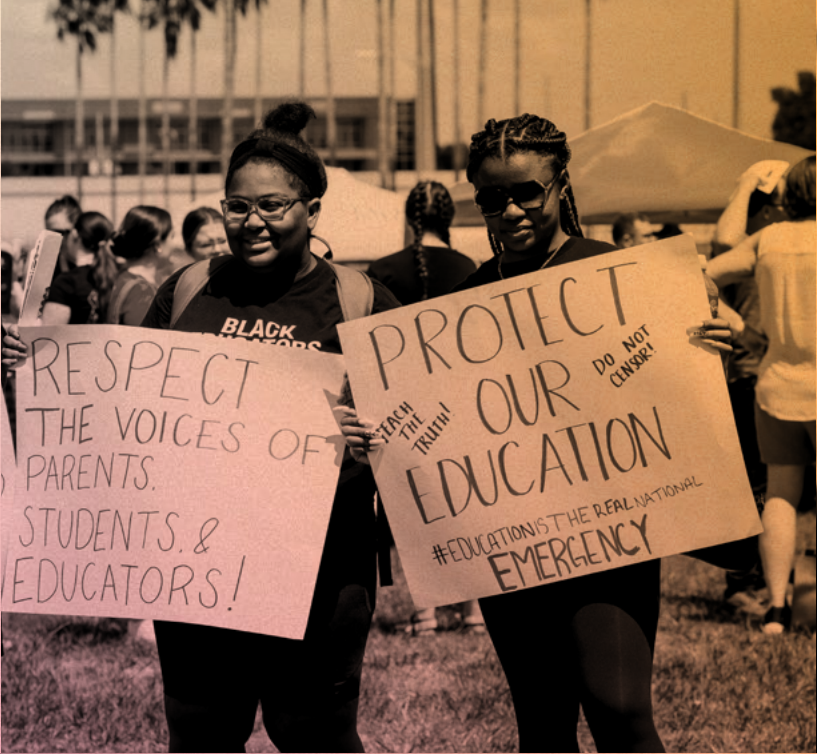 BLACK
EDUCATORS
RESPECT
THE VOICES OF
PARENTS.
STUDENTS. &
EDUCATORS!
PROTECT
OUR
EDUCATION
TEACH
THE
TRUTH!
DO NOT
CENSOR!
#EDUCATIONISTHEREALNATIONAL
EMERGENCY